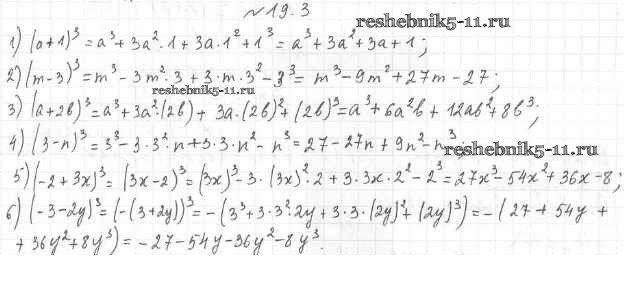 №19.3
reshebnik5-11.ru
1) (a+1)³ = a³+3a²·1+3a·1²+1³ = a³+3a²+3a+1;
2) (m-3)³ = m³-3m²·3+3·m·3²-3³ = m³-9m²+27m-27;
reshebnik5-11.ru
3) (a+2b)³ = a³+3a²·(2b)+3a·(2b)²+(2b)³ = a³+6a²b+12ab²+8b³;
4) (3-n)³ = 3³-3·3²·n+3·3·n²-n³ = 27-27n+9n²-n³;
reshebnik5-11.ru
5) (-2+3x)³ = (3x-2)³ = (3x)³-3·(3x)²·2+3·3x·2²-2³ = 27x³-54x²+36x-8;
6) (-3-2y)³ = (-(3+2y))³ = -(3³+3·3²·2y+3·3·(2y)²+(2y)³) = -(27+54y+
+36y²+8y³) = -27-54y-36y²-8y³.